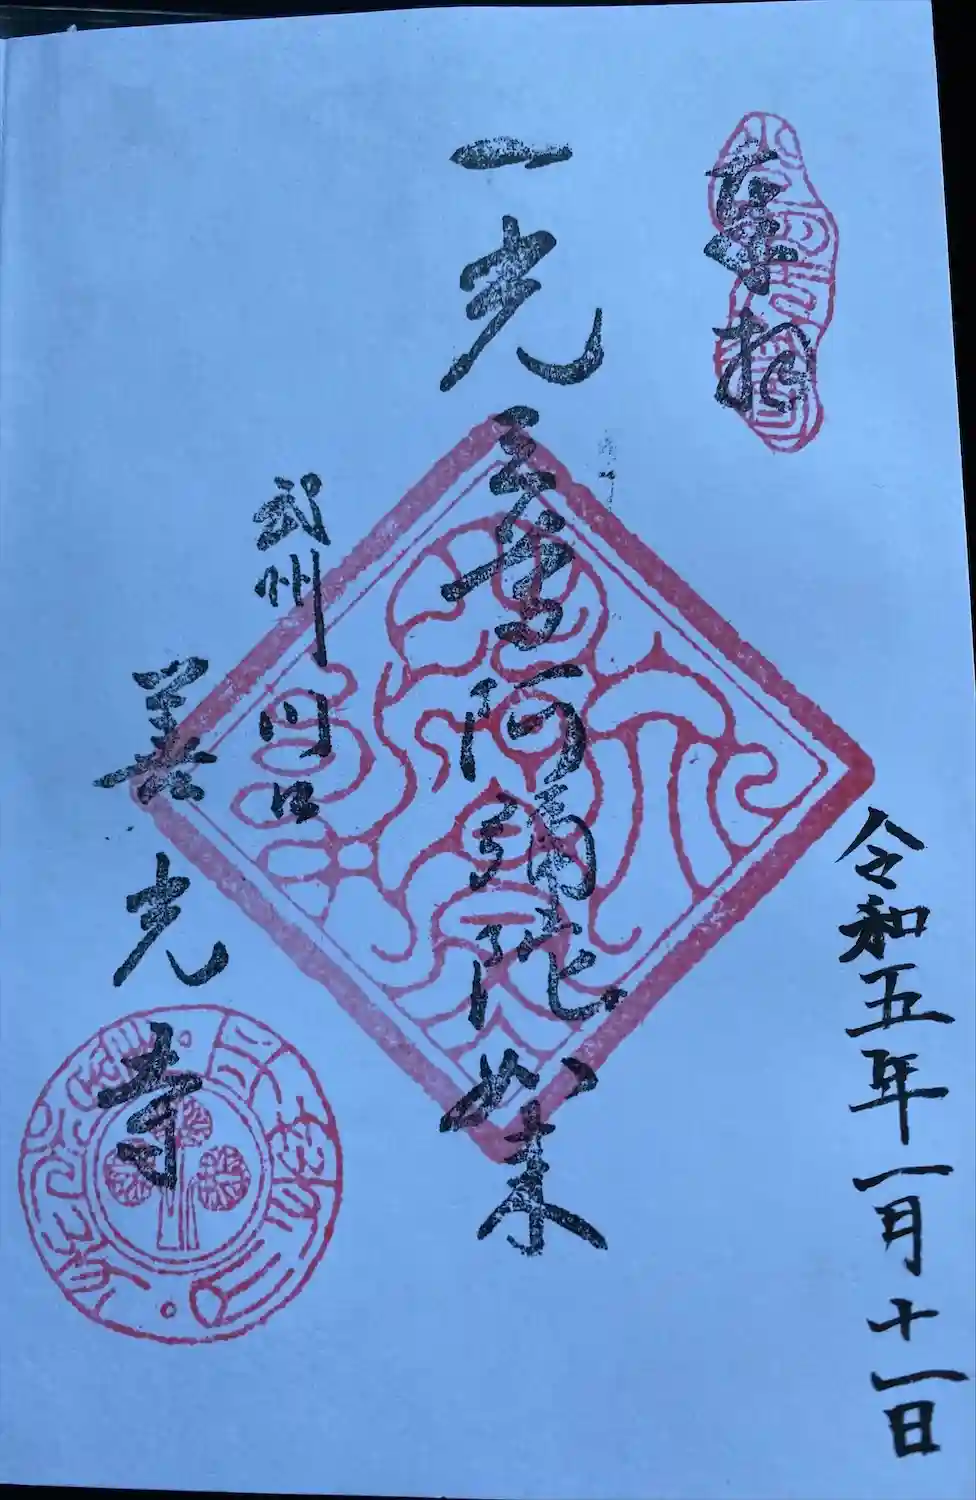 奉拝
令和五年一月十一日
一光三尊阿彌陀如来
武州川口
善光寺